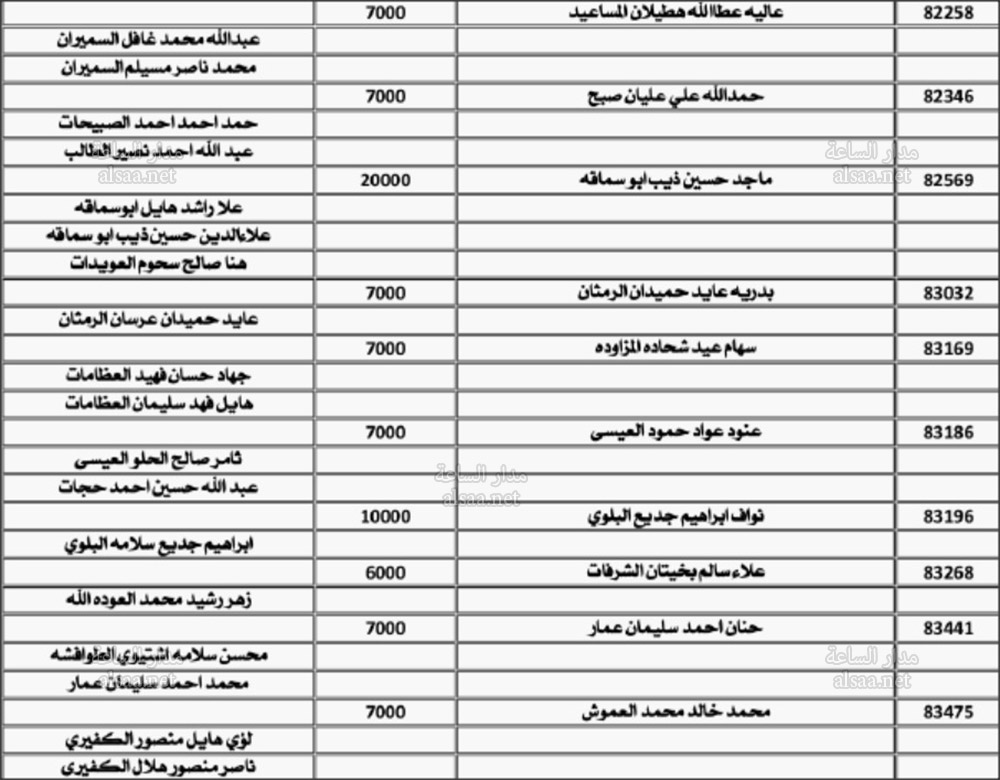 82258 عاليه عطاالله هطيلان المساعيد 7000
عبدالله محمد غافل السميران
محمد ناصر مسيلم السميران
82346 حمدالله علي عليان صبح 7000
حمد احمد احمد الصبيحات
عبد الله احمد نصير الطالب
مدار الساعة
alsaa.net
مدار الساعة
alsaa.net
82569 ماجد حسين ذيب ابو سماقه 20000
علا راشد هايل ابوسماقه
علاءالدين حسين ذيب ابو سماقه
هنا صالح سحوم العويدات
83032 بدريه عايد حميدان الرمثان 7000
عايد حميدان عرسان الرمثان
83169 سهام عيد شحاده المزاوده 7000
جهاد حسان فهيد العظامات
هايل فهد سليمان العظامات
83186 عنود عواد حمود العيسى 7000
ثامر صالح الحلو العيسى
مدار الساعة
alsaa.net
عبد الله حسين احمد حجات
83196 نواف ابراهيم جديع البلوي 10000
ابراهيم جديع سلامه البلوي
83268 علاء سالم بخيتان الشرفات 6000
زهر رشيد محمد العوده الله
83441 حنان احمد سليمان عمار 7000
محسن سلامه اشتيوي الطوافشه
مدار الساعة
alsaa.net
مدار الساعة
alsaa.net
محمد احمد سليمان عمار
83475 محمد خالد محمد العموش 7000
لؤي هايل منصور الكفيري
ناصر منصور هلال الكفيري